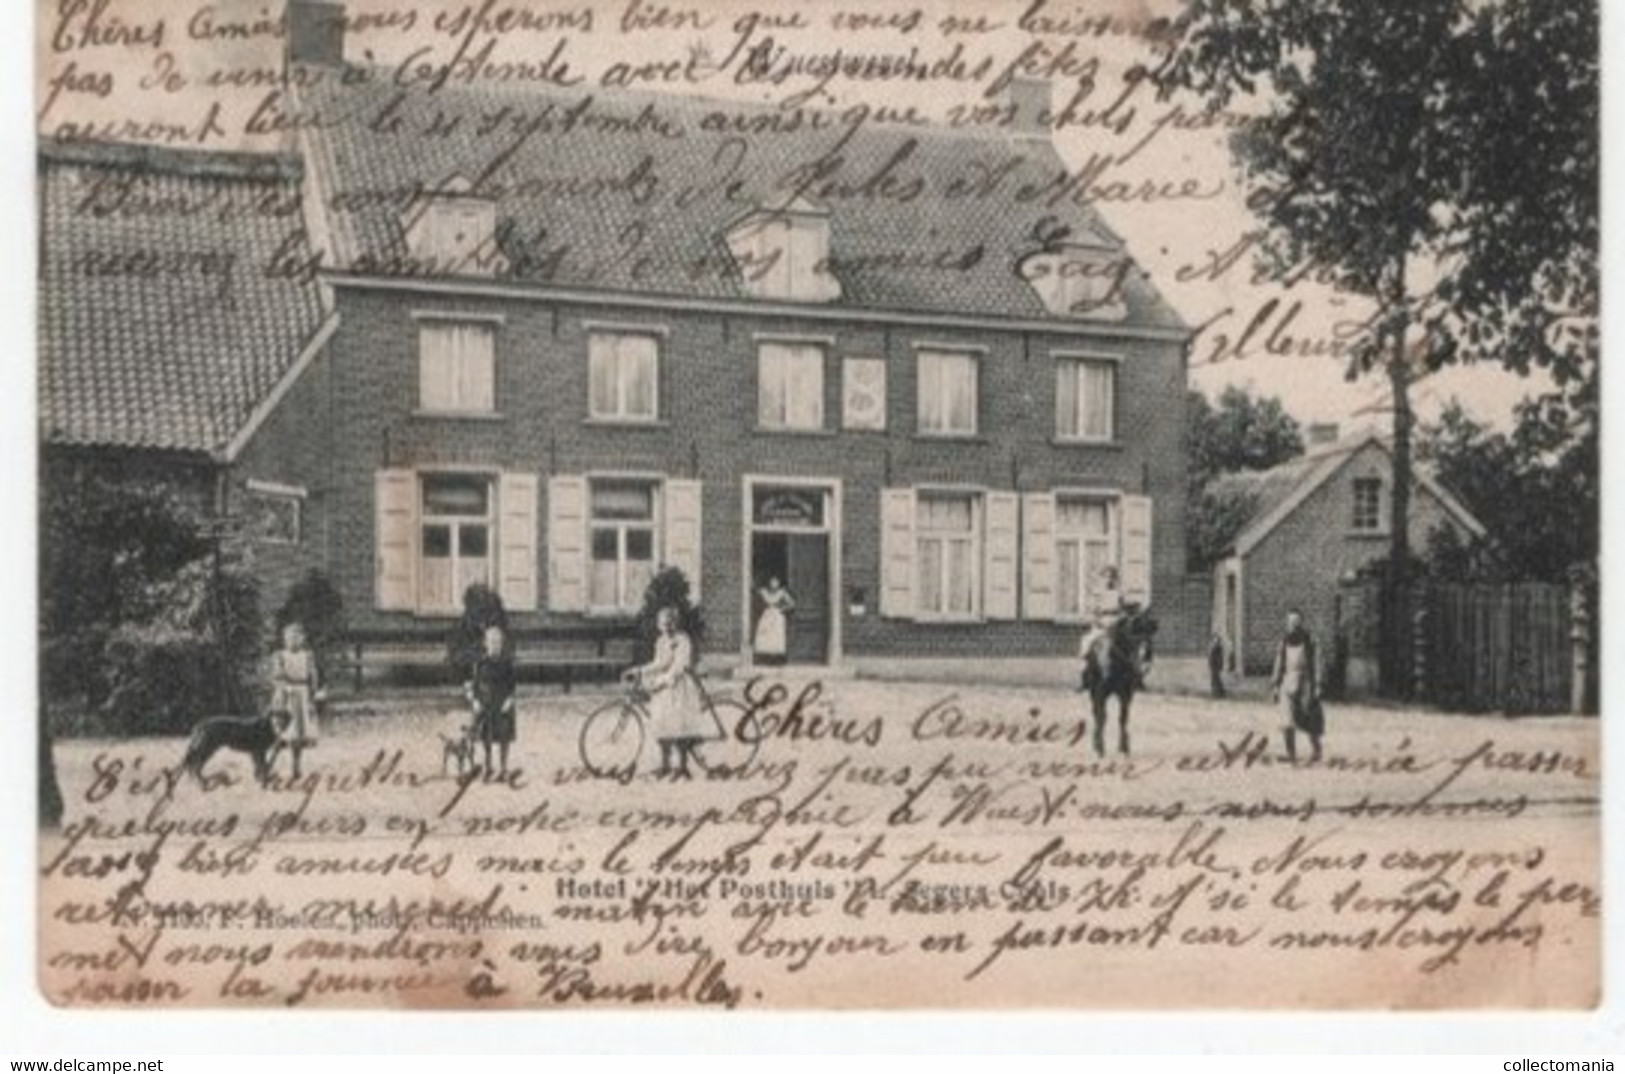 Chères Amies nous esperons bien que vous ne laisserez
pas de venir à Costende avec les grandes fêtes qui
Wuestwezel
auront lieu le 21 septembre ainsi que vos chers parents
Bien des compliments de Jules et Marie et
recevez les amitiés de vos amies Eug. et
Chères Amies
C'est à regretter que vous n'avez pas pu venir cette année passer
quelques jours en notre compagnie à Wuest: nous nous sommes
assez bien amusées mais le temps était peu favorable. Nous croyons
Hotel "Het Posthuis" A. Segers-Cools.
retourner mercredi matin avec le train de 7h et si le temps le per
N. 1195. F. Hoelen, phot. Cappellen.
met nous viendrons vous dire bonjour en passant car nous croyons
passer la journée à Bruxelles.
delcampe.net
collectomania